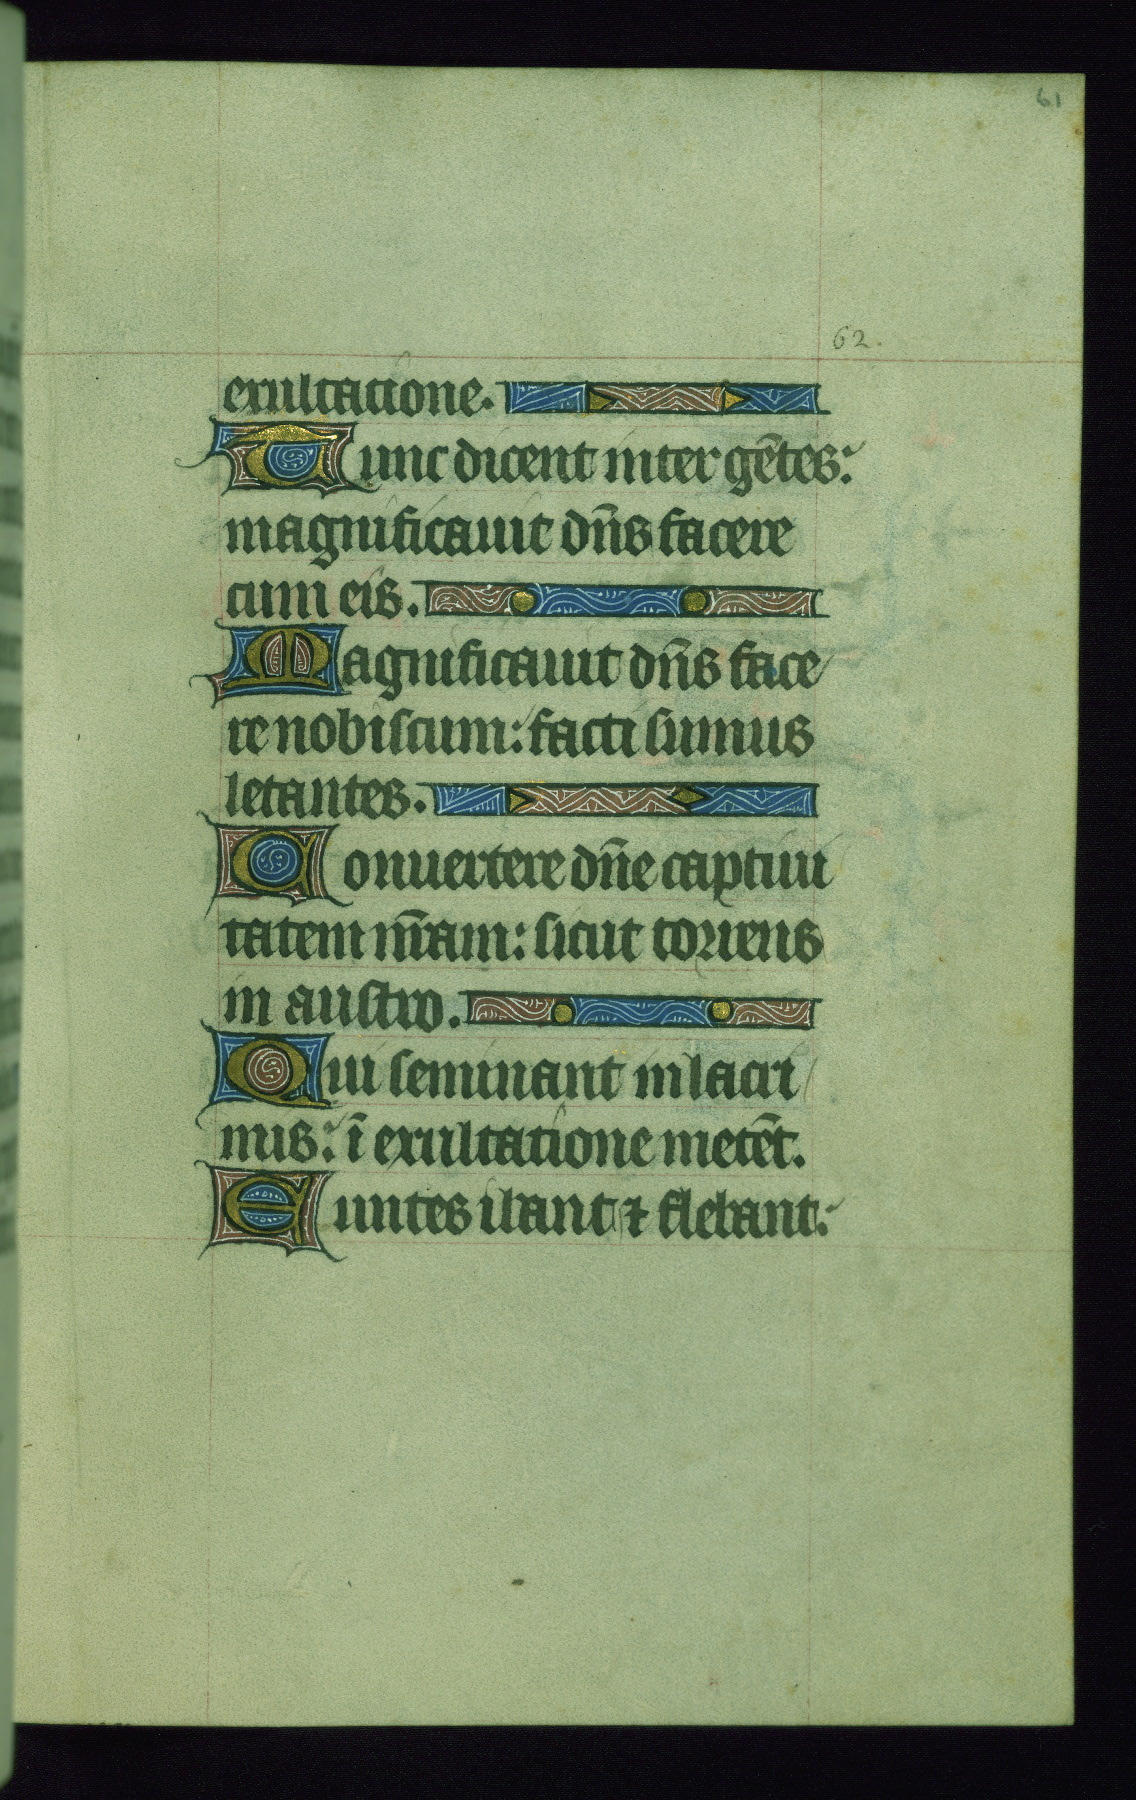 61
62.
exultatione.
Tunc dicent inter gētes:
magnificauit dn̄s facere
cum eis.
Magnificauit dn̄s face
re nobiscum: facti sumus
letantes.
Conuertere dn̄e captiui
tatem nr̄am: sicut torrens
in austro.
Qui seminant in lacri
mis: ī exultatione metēt.
Euntes ibant ⁊ flebant: